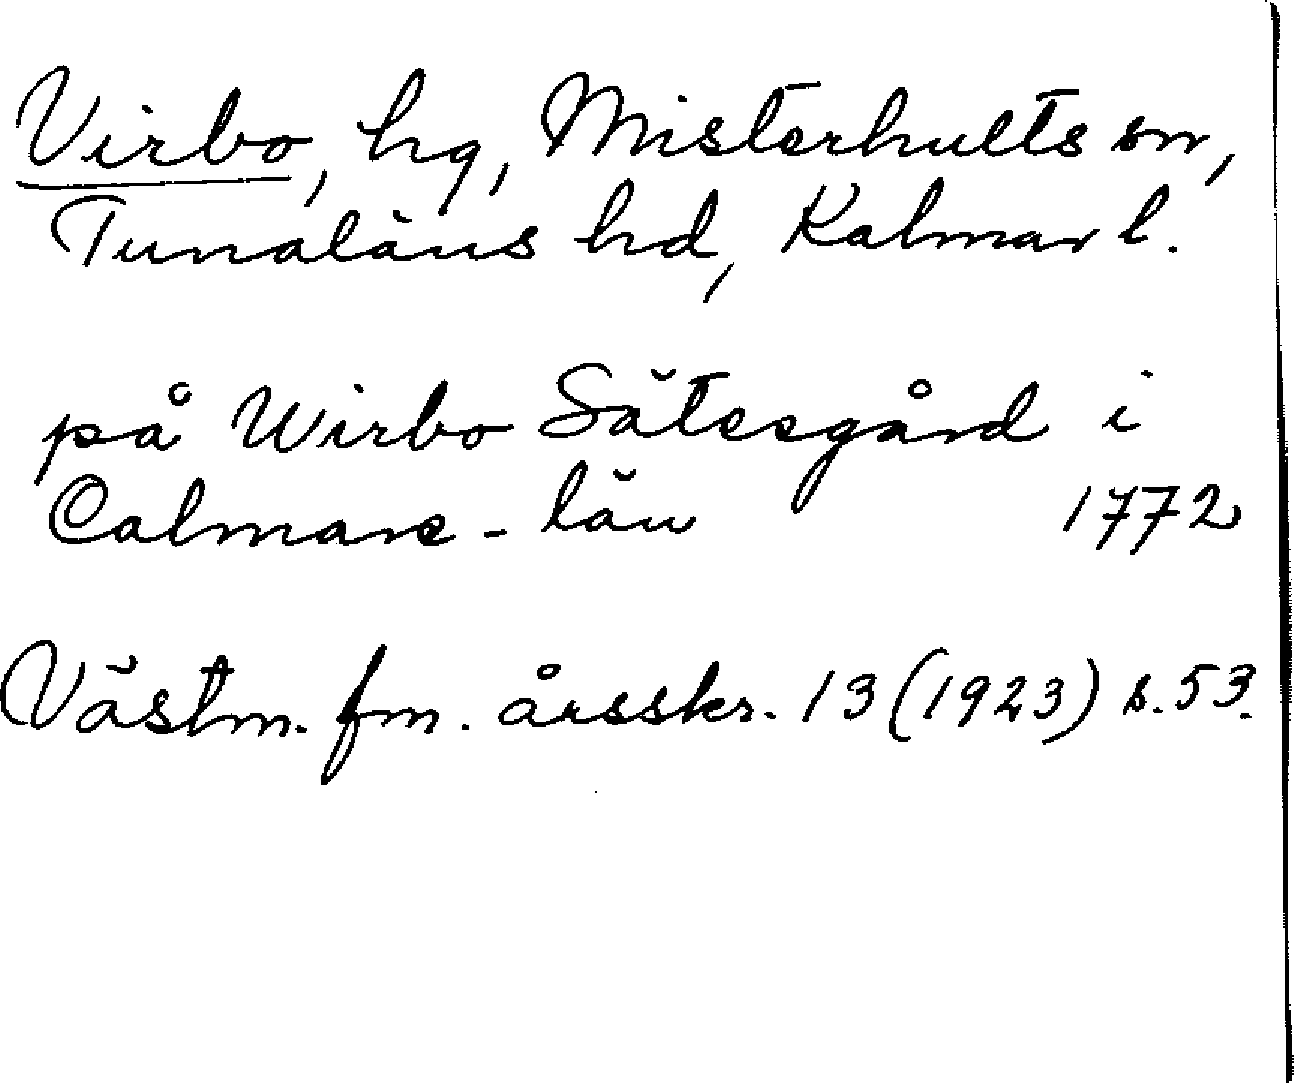 Virbo, hg, Misterhults sn,
Tunaläns hd, Kalmar l.
på Wirbo Sätesgård i
Calmare-län 1772
Västm. fm. årsskr. 13 (1923) s. 53.